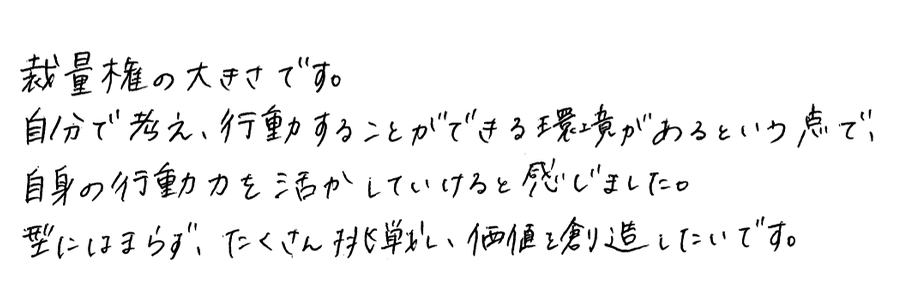 裁量権の大きさです。
自分で考え、行動することができる環境があるという点で、
自身の行動力を活かしていけると感じました。
型にはまらず、たくさん挑戦し、価値を創造したいです。